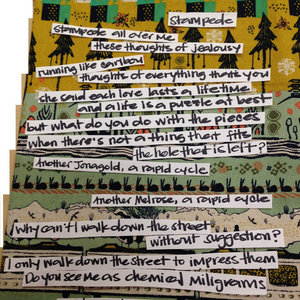 Stampede
Stampede all over me
these thoughts of jealousy
running like caribou
thoughts of everything that's you
she said each love lasts a lifetime
and a life is a puzzle at best
but what do you do with the pieces
when there's not a thing that fits
the hole that is left?
Another Jonagold, a rapid cycle
Another Melrose, a rapid cycle
Why can't I walk down the street
without suggestion?
I only walk down the street to impress them
Do you see me as chemied miligrams